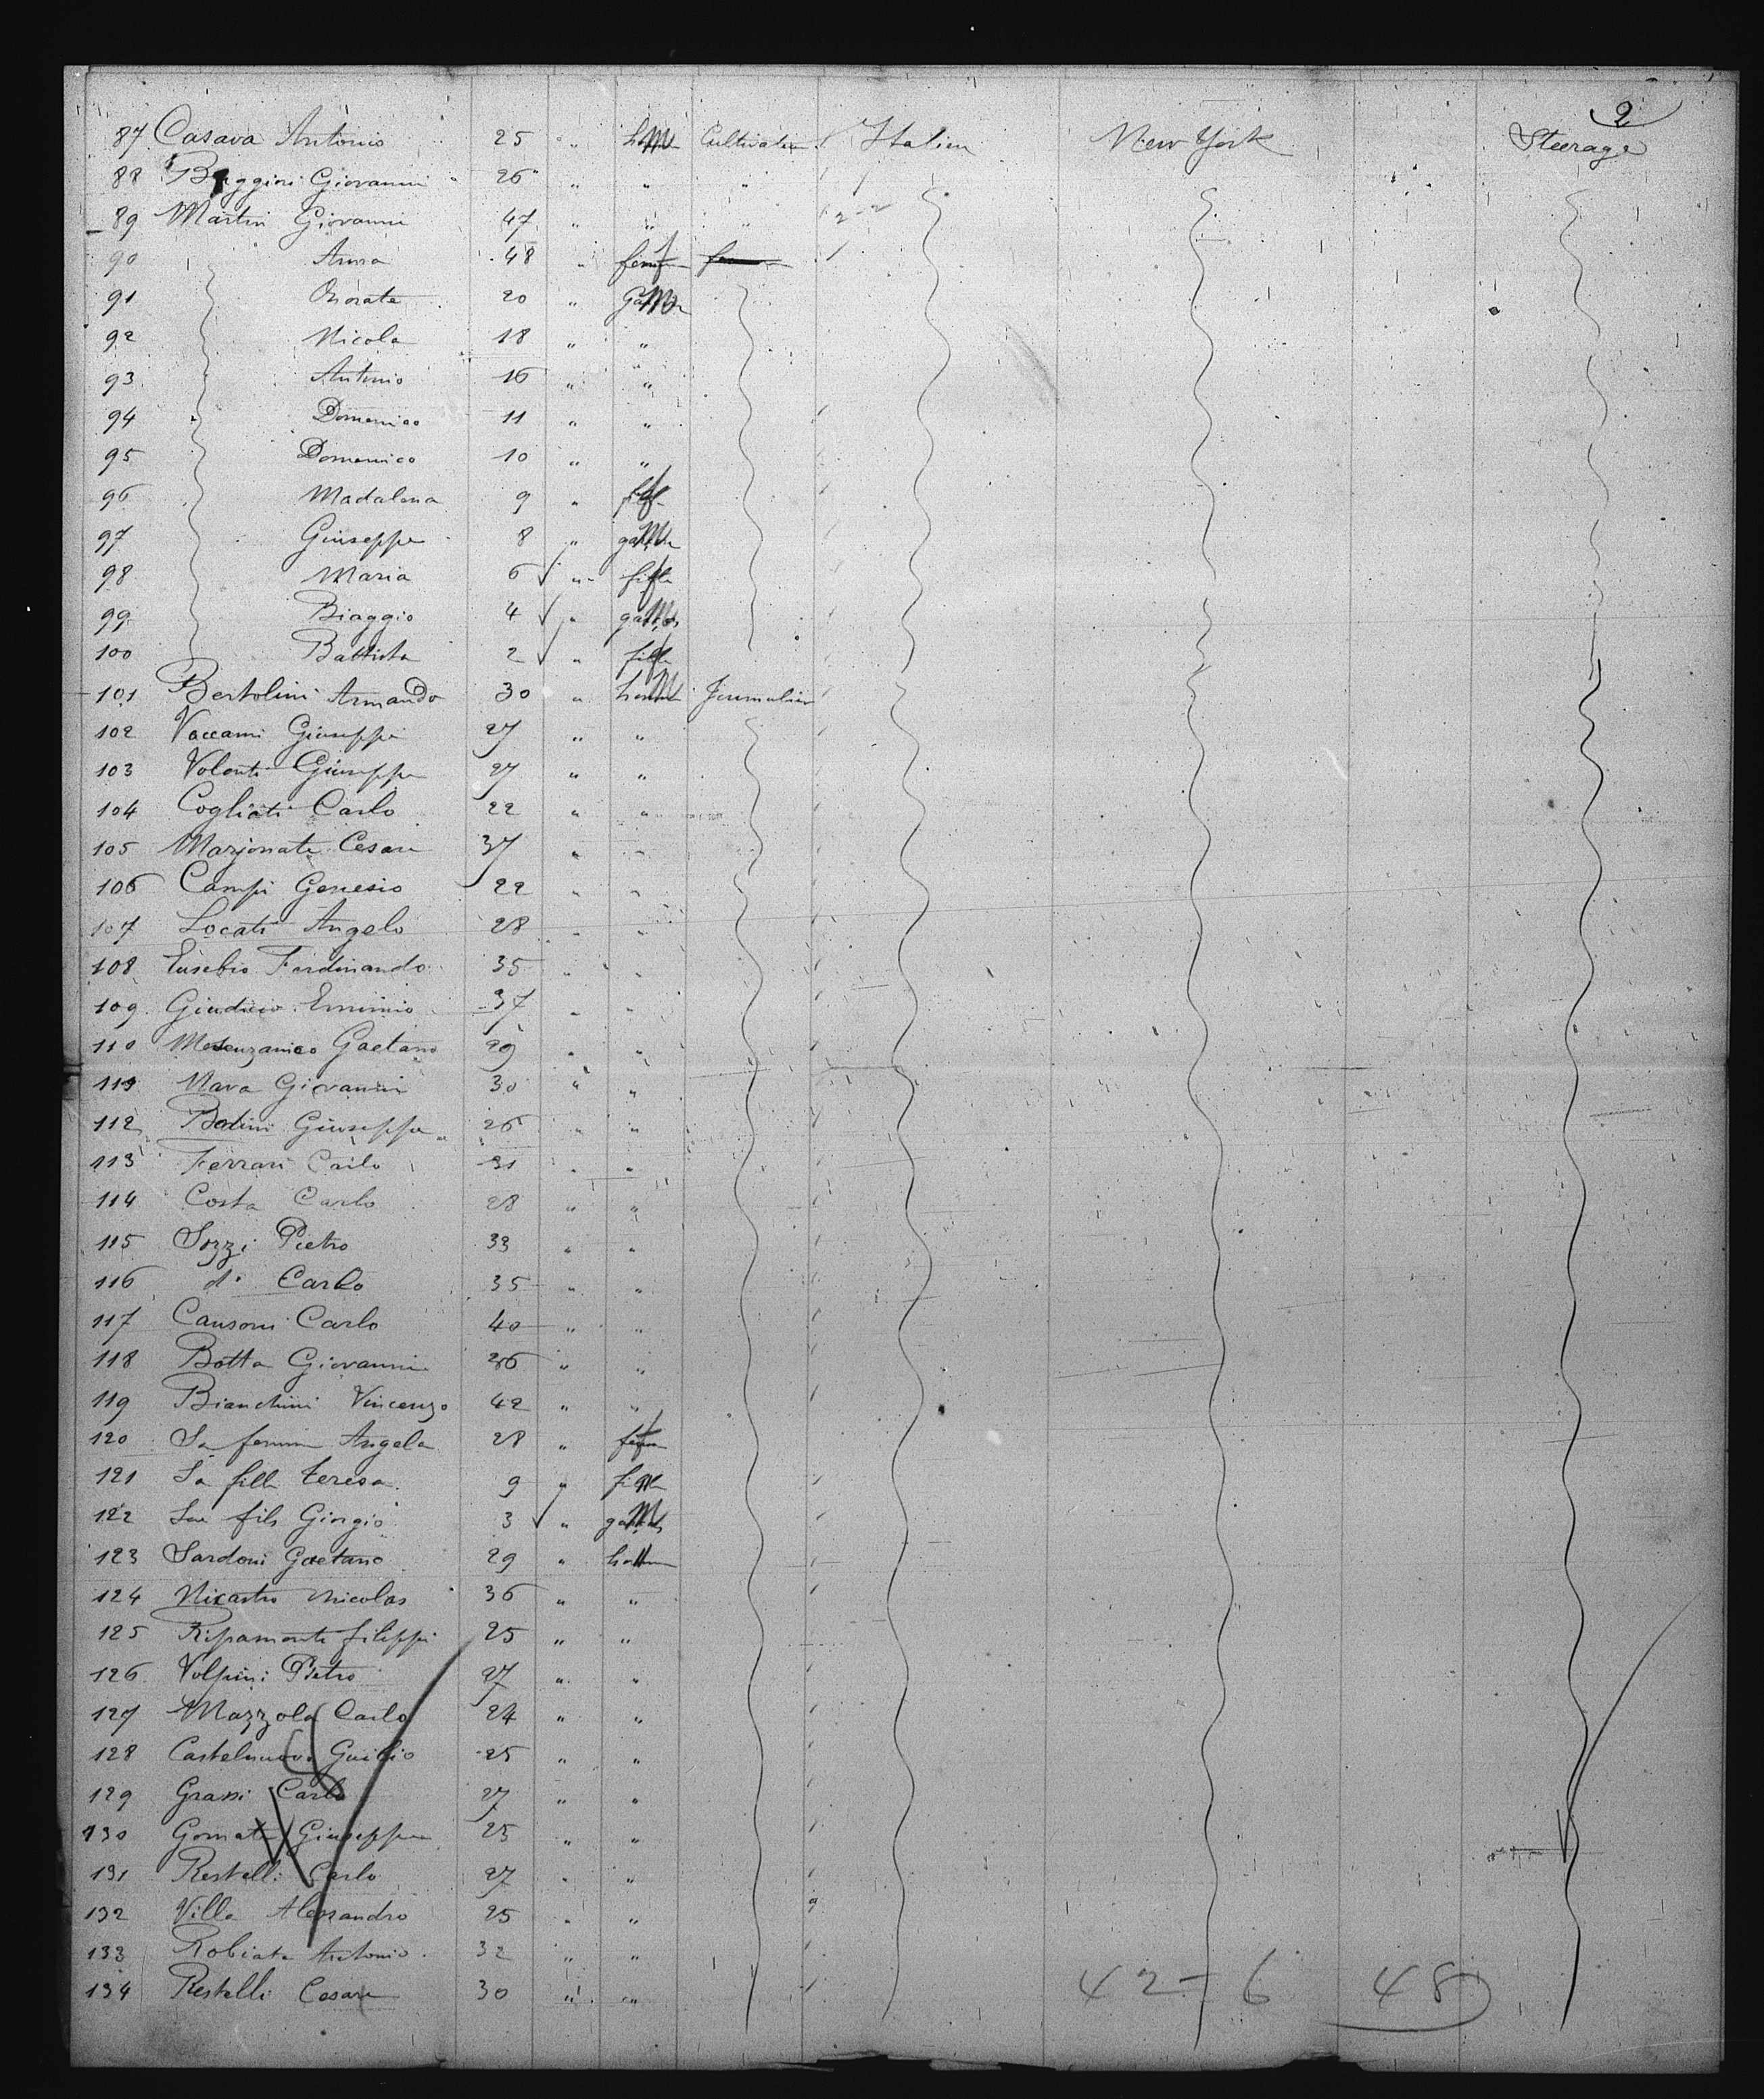 2
87 Casava Antonio 25 " Cultivateur Italien New York Steerage
88 Giovanni 26 " " "
89 Martin Giovanni 47 " " "
90 Anna 48 " f
91 Onorata 20 " M
92 Nicola 18 " "
93 Antonio 16 " "
94 Domenico 11 " "
95 Domenico 10 " "
96 Madalena 9 " f
97 Giuseppe 8 " M
98 Maria 6 " fille
99 Biaggio 4 " M
100 Battista 2 " fille
101 Bertolini Armando 30 " M Journalier
102 Vaccani Giuseppe 27 " "
103 Volonti Giuseppe 27 " "
104 Cogliati Carlo 22 " "
105 Marjonate Cesare 37 " "
106 Campi Genesio 22 " "
107 Locati Angelo 28 " "
108 Eusebio Ferdinando 35 " "
109 Erminio 37 " "
110 Gaetano 29 " "
111 Nava Giovanni 30 " "
112 Bodini Giuseppe 26 " "
113 Ferrari Carlo 31 " "
114 Costa Carlo 28 " "
115 Sozzi Pietro 33 " "
116 do Carlo 35 " "
117 Cansoni Carlo 40 " "
118 Botta Giovanni 26 " "
119 Bianchini Vincenzo 42 " "
120 Sa femme Angela 28 " f
121 Sa fille Teresa 9 " fille
122 Son fils Giorgio 3 " M
123 Sardoni Gaetano 29 "
124 Nicastro Nicolas 36 " "
125 Ripamonti filippi 25 " "
126 Volpini Pietro 27 " "
127 Mazzola Carlo 24 " "
128 Castelnuovo Guilio 25 " "
129 Grassi Carlo 27 " "
130 Giuseppe 25 " "
131 Restelli Carlo 27 " "
132 Villa Alessandro 25 " "
133 Robiate Antonio 32 " "
134 Restelli Cesare 30 " "
42 - 6 48